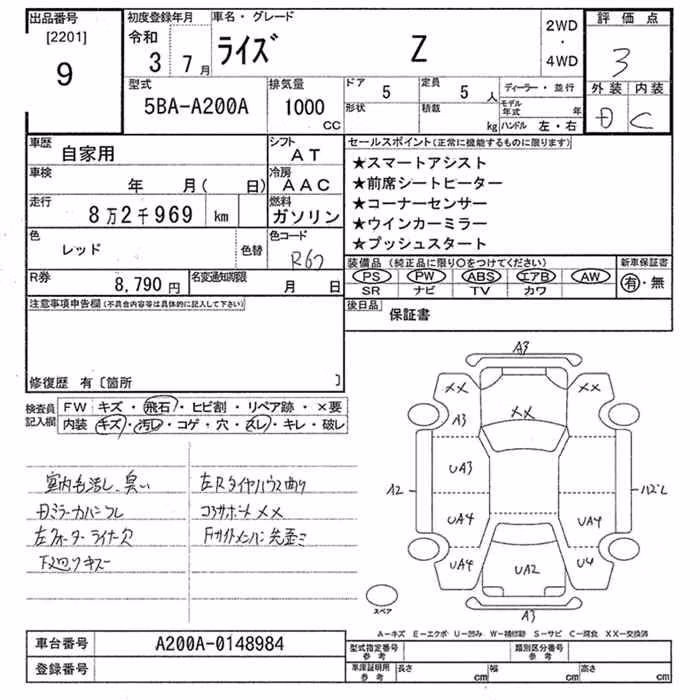 出品番号
[2201]
9
初度登録年月
令和
3 7月
車名・グレード
ライズ Z
2WD
・
4WD
評価点
3
外装 内装
D C
型式
5BA-A200A
排気量
1000
CC
ドア 5
定員 5 人
形状
積載 kg
ディーラー・並行
モデル年式 年
ハンドル 左・右
車歴 自家用
シフト AT
車検 年 月( 日)
冷房 AAC
走行 8万2千969 km
燃料 ガソリン
色 レッド 色替
色コード R67
R券 8,790円
名変通知期限 月 日
セールスポイント(正常に機能するものに限ります)
★スマートアシスト
★前席シートヒーター
★コーナーセンサー
★ウインカーミラー
★プッシュスタート
装備品(純正品に限り○をつけてください)
PS PW ABS エアB AW
SR ナビ TV カワ
新車保証書
有・無
後日品 保証書
注意事項申告欄(不具合内容等は具体的に記入して下さい)
修復歴 有〔箇所 〕
検査員記入欄
FW キズ・飛石・ヒビ割・リペア跡・×要
内装 キズ・汚レ・コゲ・穴・スレ・キレ・破レ
室内毛汚し、臭い
左Rタイヤハウス曲り
コアサポートXX
左クォーターライナー欠
下廻りキズ
A3
XX XX
XX
A3
UA3
A2
UA4 UA4
UA4 UA2 U4
A3
スペア
A-キズ E-エクボ U-凹み W-補修跡 S-サビ C-腐食 XX-交換済
車台番号 A200A-0148984
登録番号
型式指定番号 参考
類別区分番号 参考
車庫証明用 参考
長さ cm
幅 cm
高さ cm